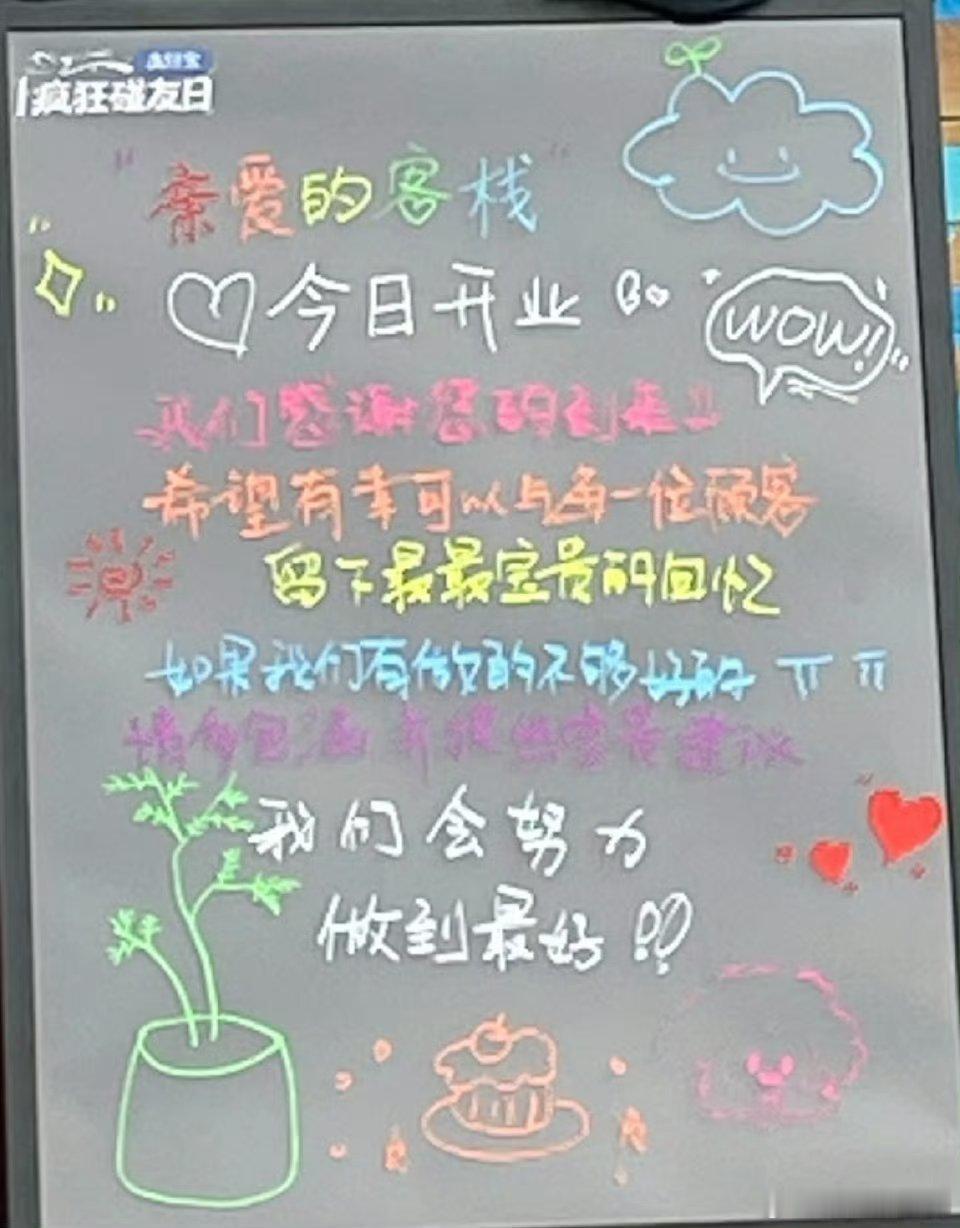 支付宝
疯狂碰友日
"亲爱的客栈"
♡今日开业
WOW!
我们感谢您的到来!!
希望有幸可以与每一位顾客
留下最最宝贵的回忆
如果我们有做的不够好的 TT TT
请多包涵并提出宝贵建议
我们会努力
做到最好!!